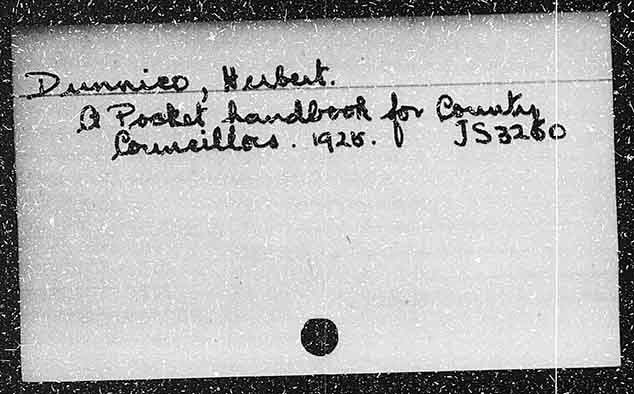 Dunnico, Herbert.
A Pocket handbook for County
Councillors. 1925. JS3260